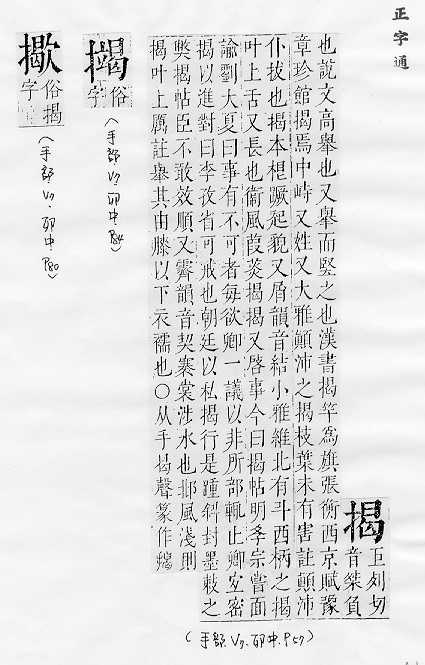 正字通
揭
巨列切
音桀負
也說文高舉也又舉而竪之也漢書揭竿爲旗張衡西京賦豫
章珍館揭焉中峙又姓又大雅顛沛之揭枝葉未有害註顛沛
仆拔也揭本根蹶起貌又屑韻音結小雅維北有斗西柄之揭
叶上舌又長也衞風葭菼揭揭又啓事今曰揭帖明孝宗嘗面
諭劉大夏曰事有不可者每欲卿一議以非所部輒止卿宜密
揭以進對曰李孜省可戒也朝廷以私揭行是踵斜封墨敕之
弊揭帖臣不敢效順又霽韻音契褰裳涉水也邶風淺則
揭叶上厲註舉其由膝以下衣襦也○从手曷聲篆作
(手部. V7. 卯中. P.57)
俗
字
(手部 V7. 卯中 P84)
俗揭
字
(手部 V7. 卯中 P80)